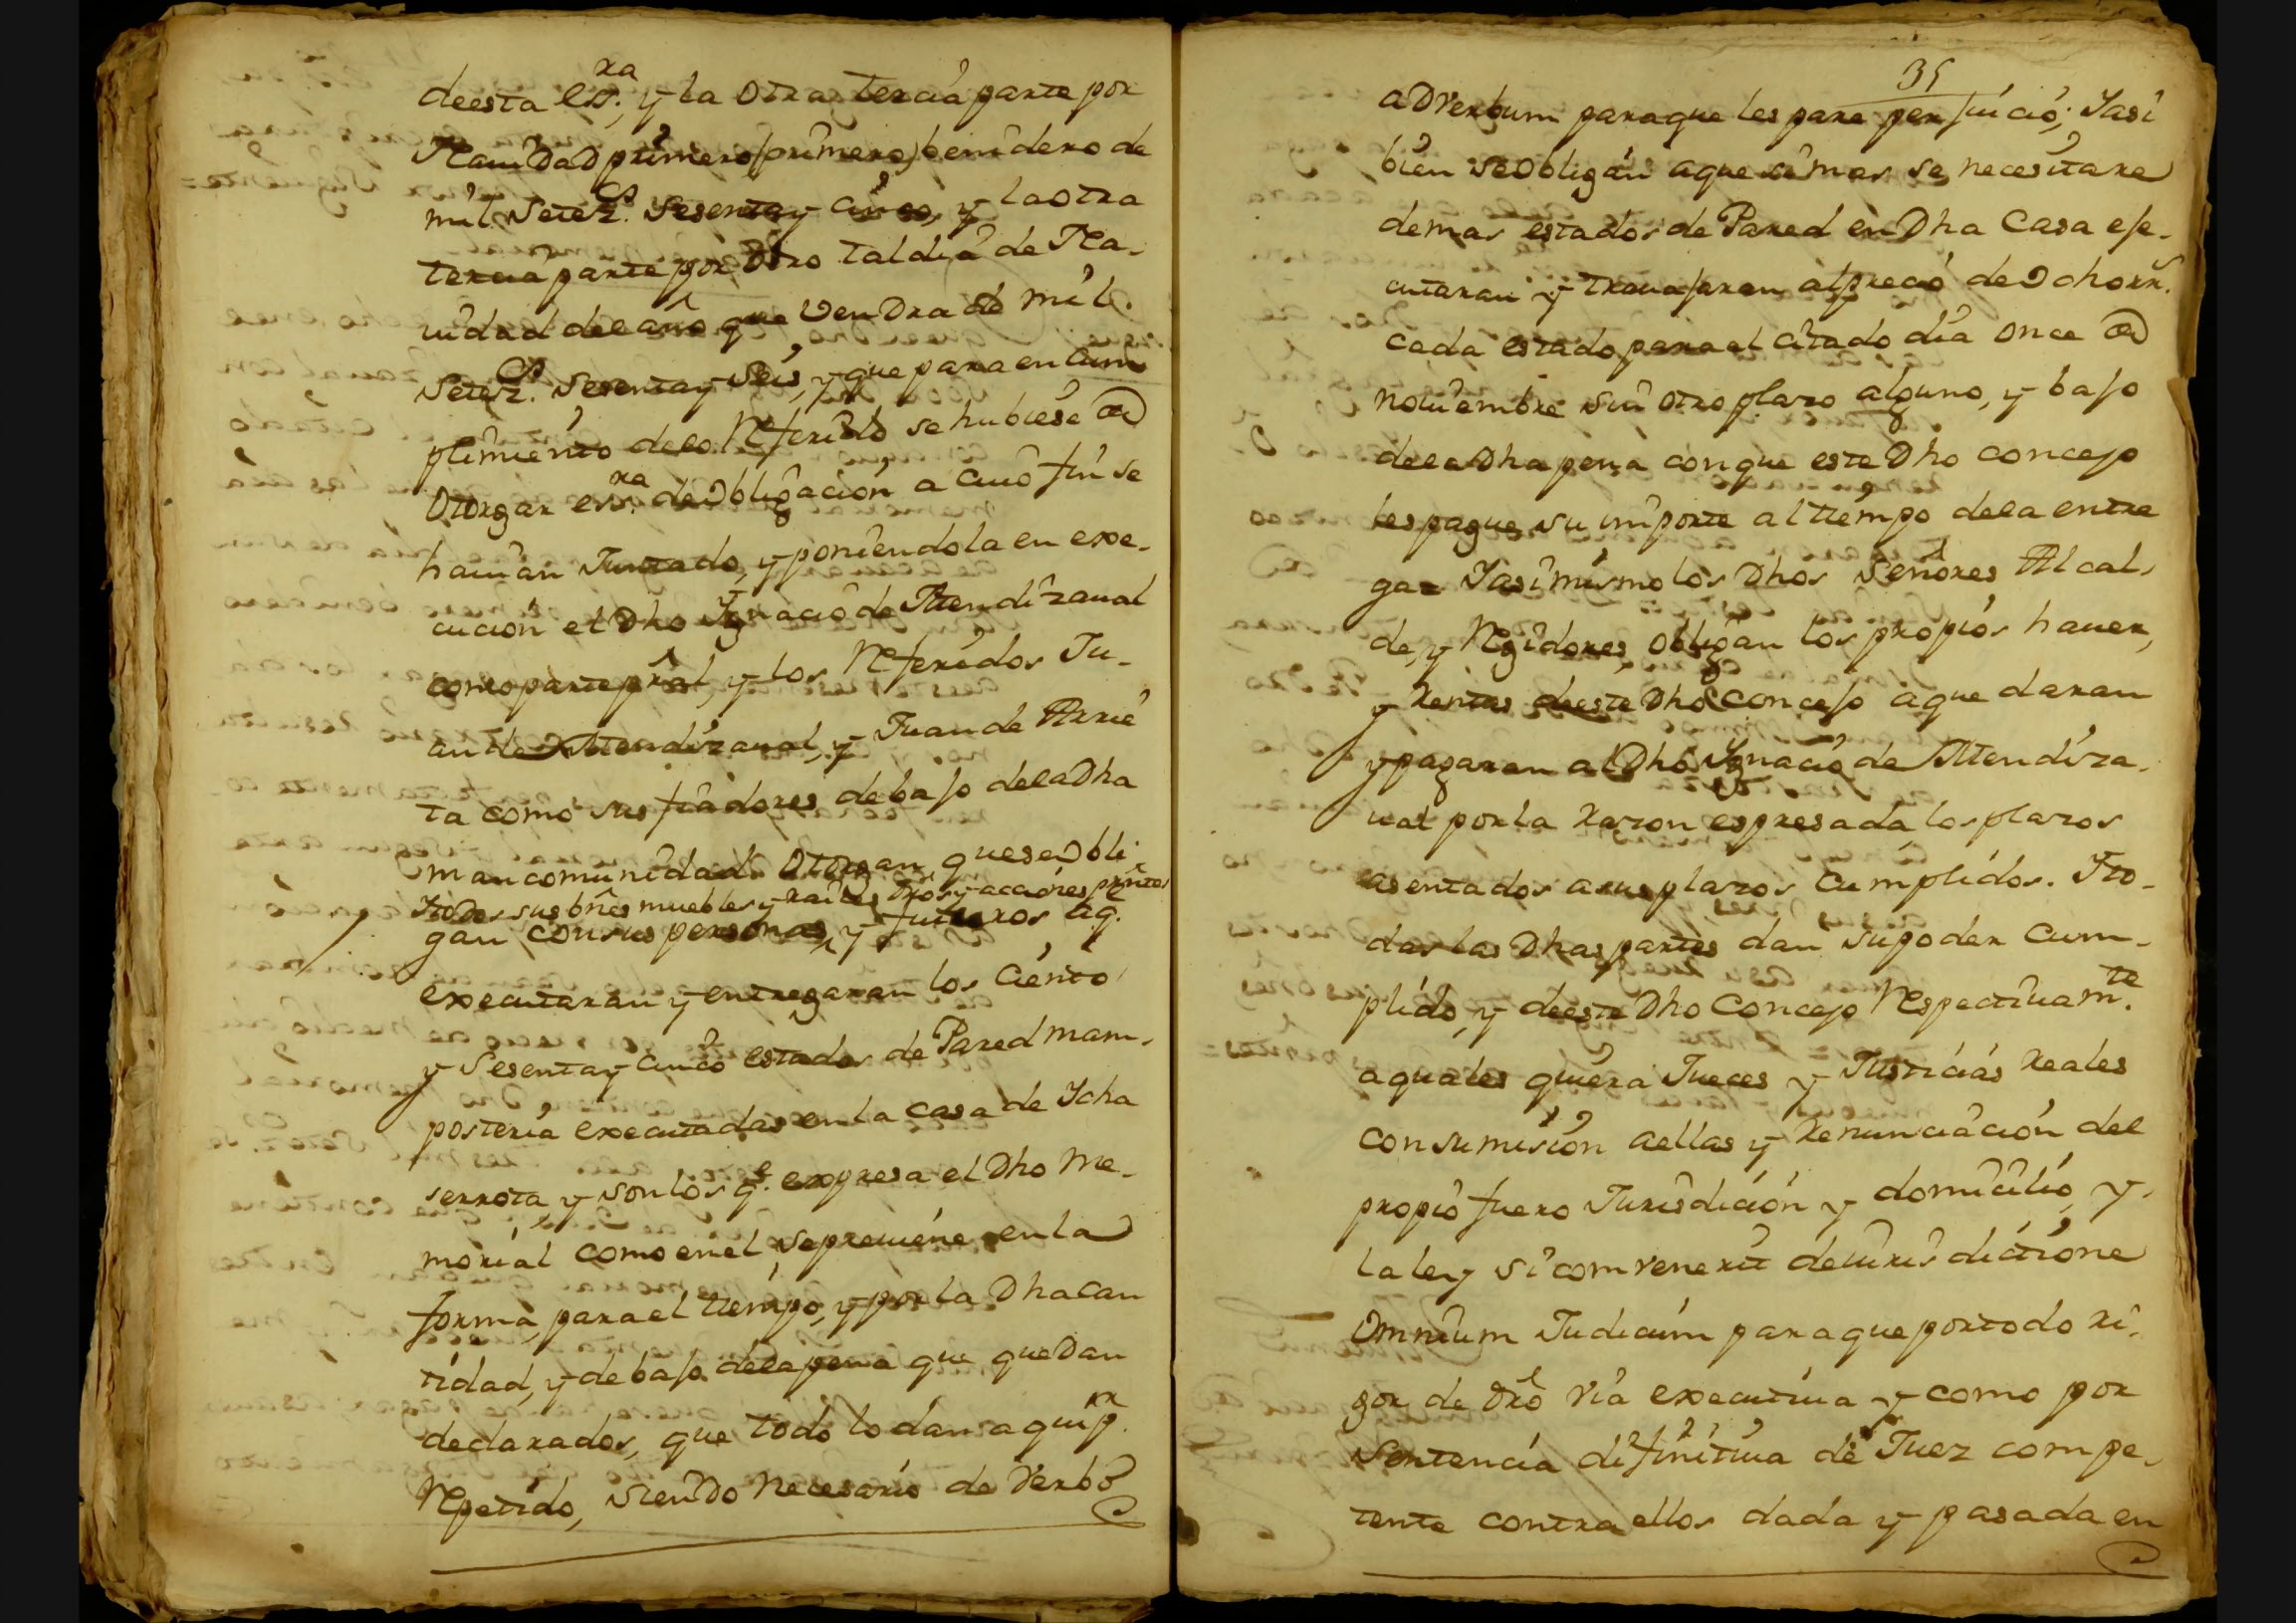 deesta essra, y la otra tercia parte por
Nauidad primero (primero) benidero de
mil Setezs. Sesenta y cinco, y la otra
tercia parte por otro tal dia de Na-
uidad del año que vendra de mil.
Setezs. Sesenta y seis, y que para en cum
plimiento delo Referido se hubiese de
otorgar essra. de obligacion, a cuio fin se
hauian Juntado, y poniendola en exe-
cucion el Dho Ygnacio de Atendizaual
como parte prâl, y los Referidos Ju-
an de Atendizaual, y Juan de Arrie
ta como sus fiadores debajo dela Dha
mancomunidad. Otorgan que se obli
Ytodos sus bnes muebles y raices Dros y acciones presentes
gan con sus personas, y futuros aq.
executaran y entregaran los ciento
y Sesenta y cinco estados de Pared mam-
posteria executadas en la casa de Icha
serrota y son los qe. expresa el Dho Me-
morial como en el, se preuiene en la
forma, para el tiempo, y por la Dha can
tidad, y debajo dela pena que quedan
declarados, que todo lo dan aqui pr.
Repetido, siendo necesario de Verbo
35
adVerbum para que les pare perjuicio; Yasi
bien se obligan a que si mas se necesitare
de mas estados de Pared en Dha Casa eje-
cutaran y trauajaran al precio de Ocho rr.
cada estado para el citado dia once de
nouiembre sin otro plazo alguno, y bajo
dela Dha pena con que este Dho concejo
les pague su importe al tiempo dela entre
ga= Yasimismo los Dhos Señores Alcal-
de, y Regidores obligan los propios hauer,
y Rentas deeste Dho Concejo a que daran
y pagaran al Dho Ygnacio de Atendiza-
ual por la Razon espresada, los plazos
asentados a sus plazos cumplidos. Yto-
das las Dhas partes dan su poder cum-
plido, y deeste Dho Concejo Respectiuamte.
a quales quiera Jueces y Justicias Reales
con sumision aellas y Renunciacion del
propio fuero Jurisdicion y domicilio, y
la ley si comvenerit de iuris dictione
Omnium Judicum para que por todo ri-
gor de Dro via executiua y como por
Sentencia difinitiua de Juez compe-
tente contra ellos dada y pasada en